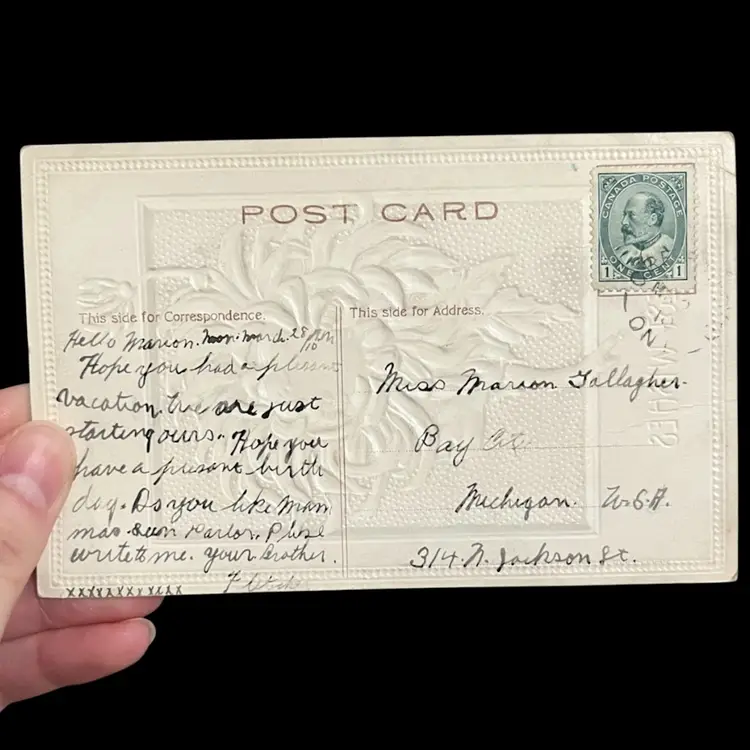 POST CARD
CANADA POSTAGE
1 ONE CENT 1
This side for Correspondence.
Hello Marion. Mon. March. 28
10
Hope you had a plesent
vacation. We are just
starting ours. Hope you
have a plesent birth
day. Do you like Mam
mas. Sun Parlor. Plese
write to me. your Brother.
Fletch
xxxxxxxxxxxx
This side for Address.
Miss Marion Gallagher.
Bay City
Michigan. U.S.A.
314. N. Jackson St.
ON